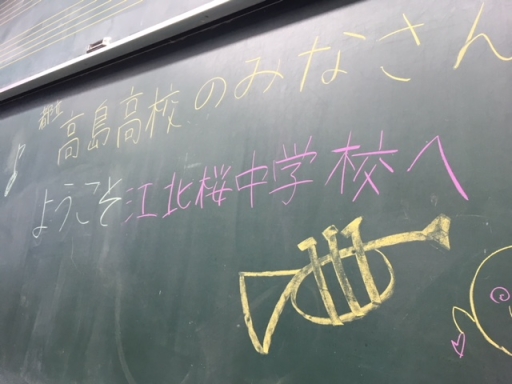 都立高島高校のみなさん
ようこそ江北桜中学校へ